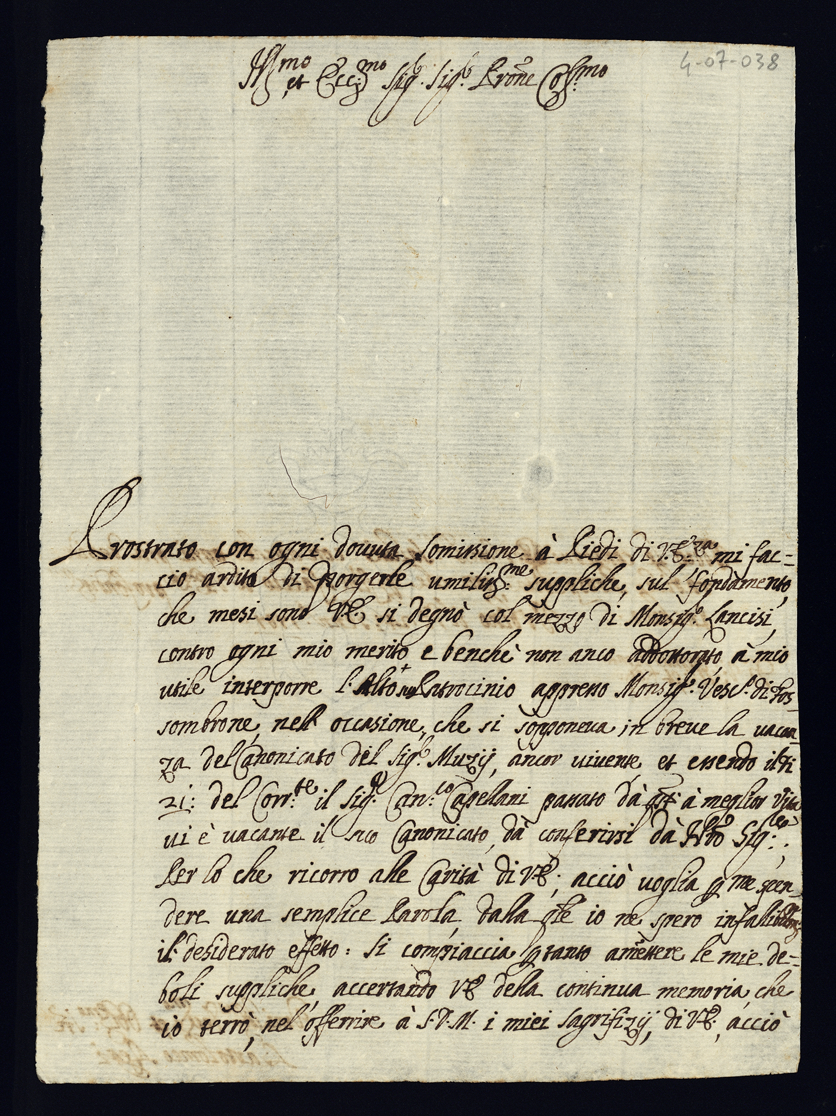 4-07-038
Ill:mo et Ecc:mo Sig.r Sig.r Prōne Col:mo
Prostrato con ogni douuta somissione à Piedi di V.E.za mi fac=
cio ardito di porgerle umiliss:me suppliche, sul fondamento,
che mesi sono V.E. si degnò col mezzo di Monsig.r Lancisi,
contro ogni mio merito e benchè non anco addottorato, à mio
utile interporre l'Alto suo Patrocinio appresso Monsig.r Vesc.o di Fos=
sombrone, nell occasione, che si sopponeua in breve la vacan
za del Canonicato del Sig.r Muzij, ancor vivente et essendo il di
21: del Corr.te il Sig.r Can.co Capellani passato dà q̄sta à meglior Vita
vi è vacante il suo Canonicato, dà conferirsi dà Sig.:
Per lo che ricorro alle Carità di V.E:, acciò voglia p me spen
dere una semplice Parola dalla q̄le io ne spero infallibilm.te
il desiderato effetto: si compiaccia p tanto am̄ettere le mie de=
boli suppliche, accertando V.E. della continua memoria, che
io terrò, nel offerire à S.D.M. i miei sagrifizij, di V.E., acciò